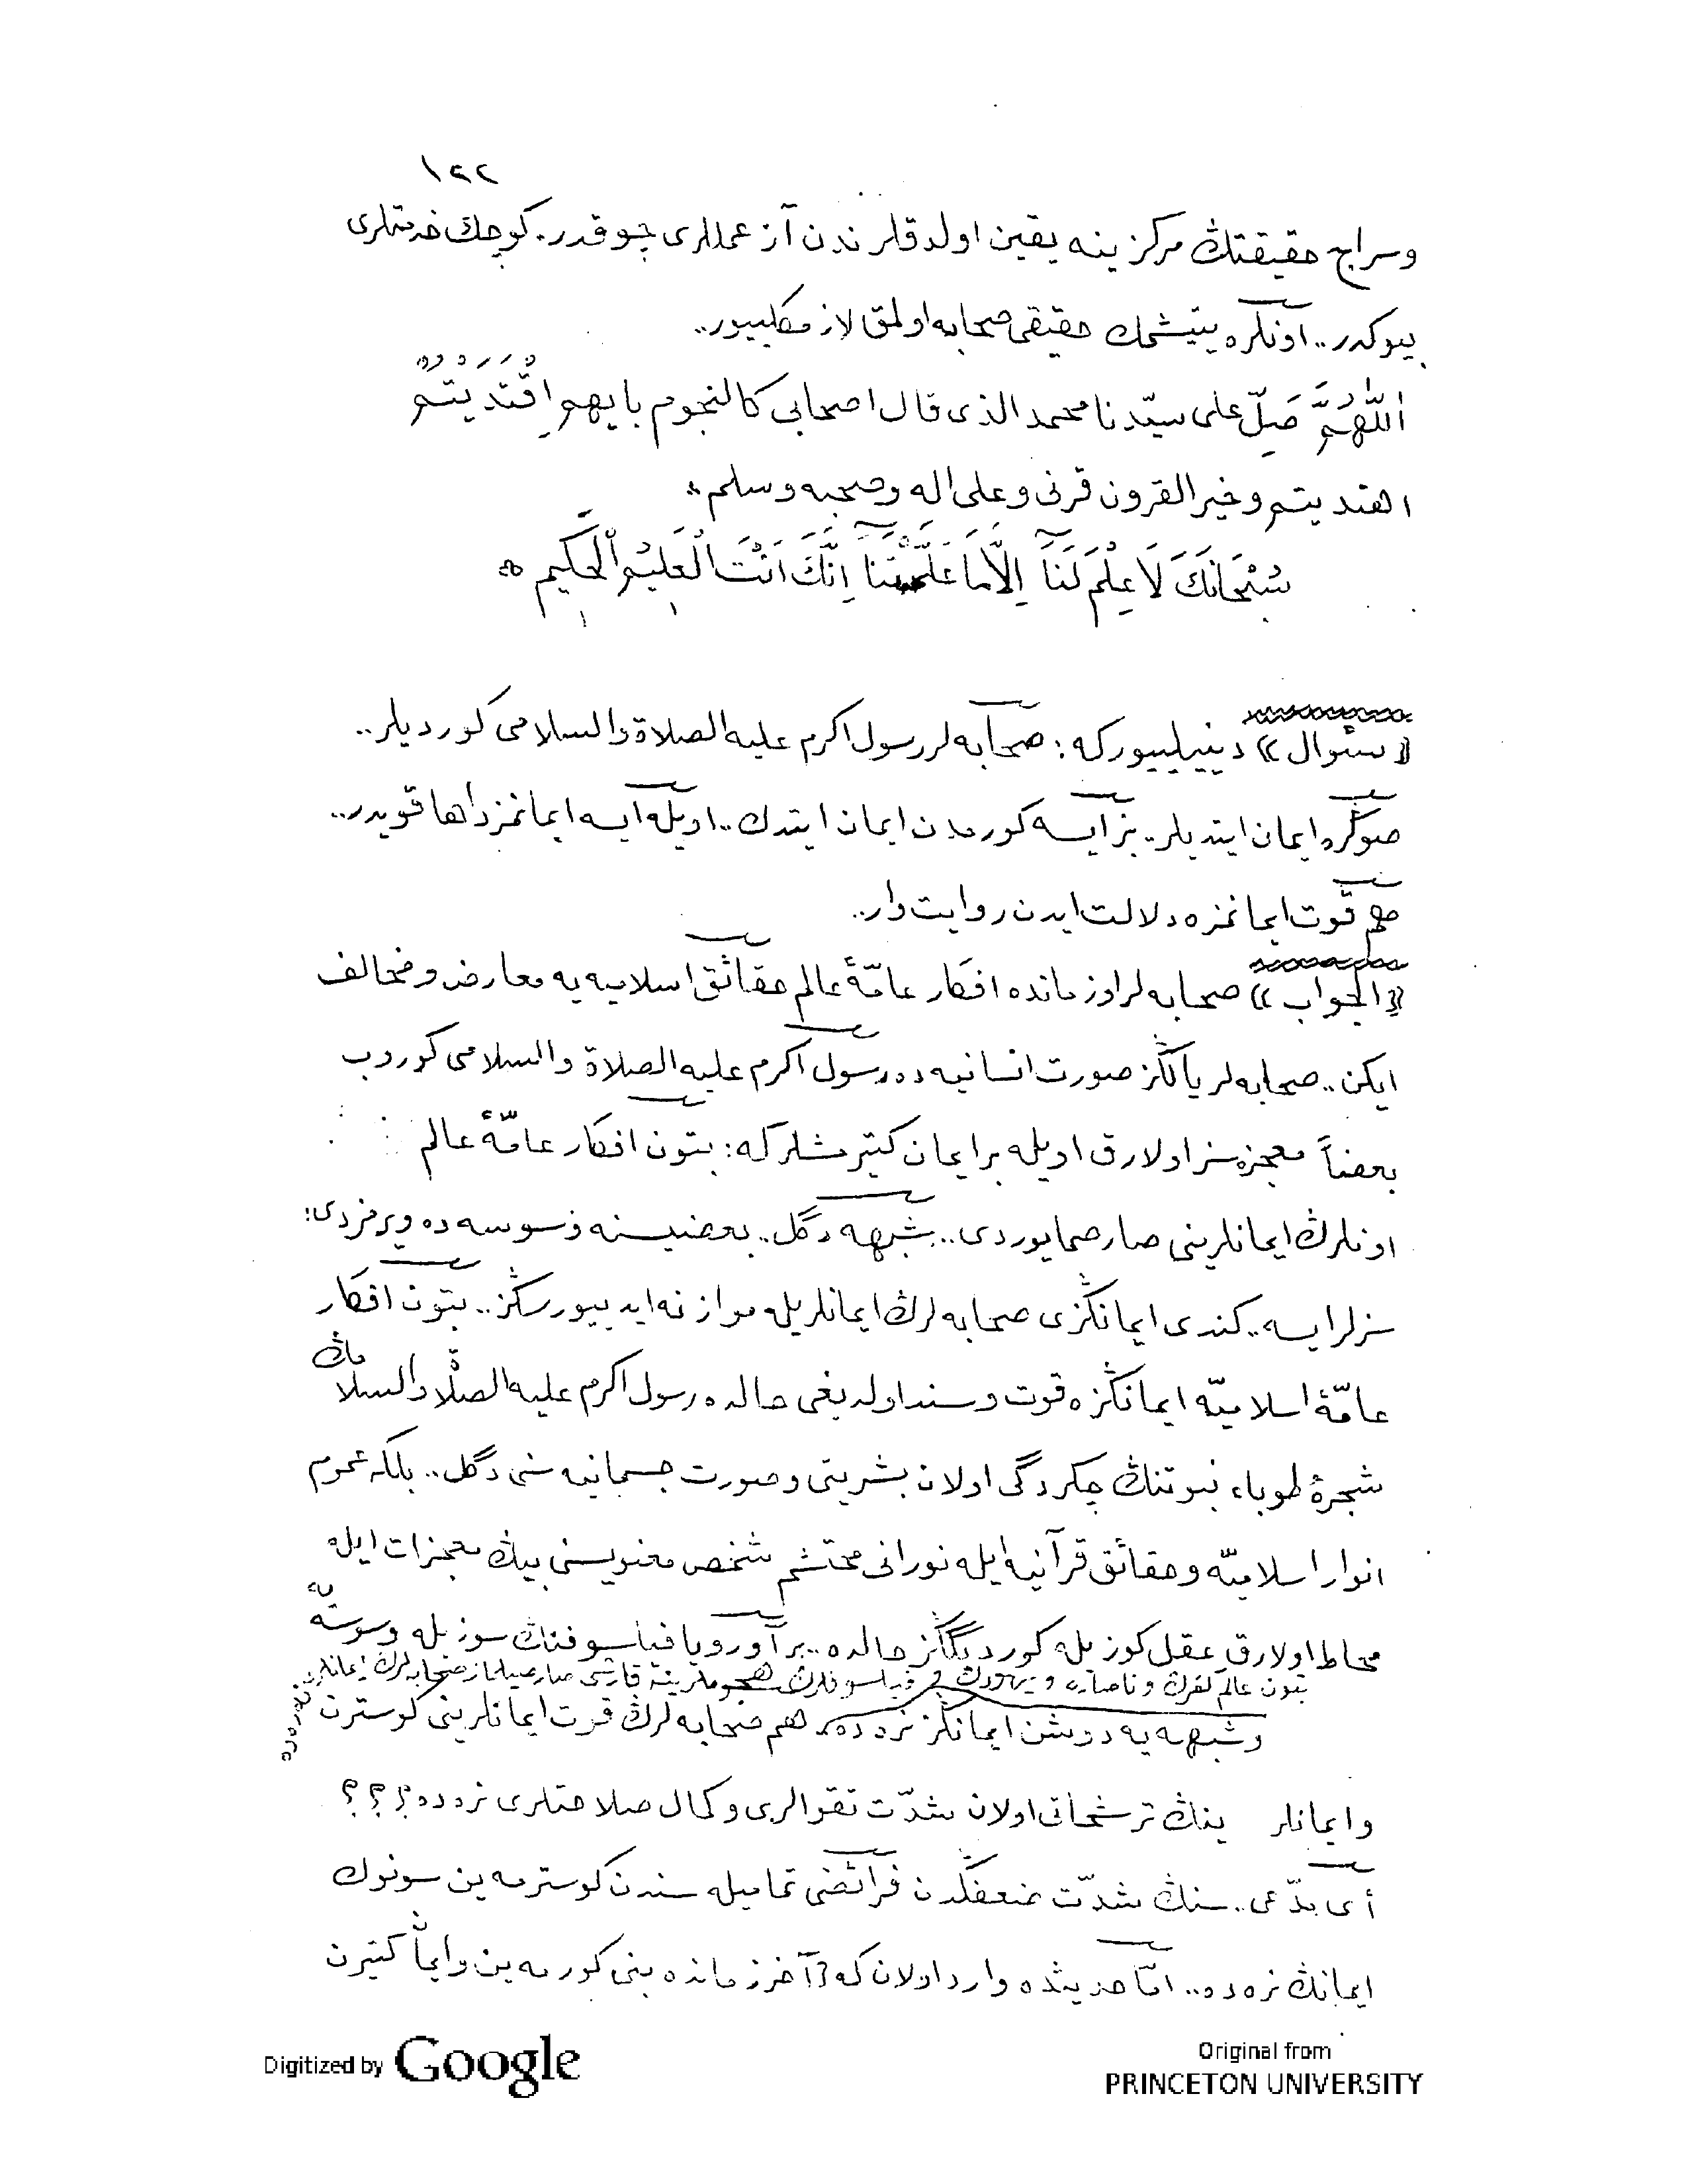 ١٢٢
وسراج حقيقتڭ مركزينه يقين اولدقلرندن آز عمللرى چوقدر. كوچك خدمتلرى
بيوكدر.. اونلره يتيشمك حقيقى صحابه اولمق لازمكلييور..
اَللّٰهُمَّ صَلِّ على سيّدنا محمد الذى قال اصحابى كالنجوم بايهم اِقْتَدَيْتُمْ
اهتديتم وخير القرون قرنى وعلى اله وصحبه وسلم
سُبْحَانَكَ لَا عِلْمَ لَنَا اِلَّا مَا عَلَّمْتَنَا اِنَّكَ اَنْتَ الْعَلِيمُ الْحَكِيم
«سئوال» دينيلييوركه: صحابه لر رسول اكرم عليه الصلاة والسلامى كورديلر..
صوڭره ايمان ايتديلر.. بز ايسه كورمدن ايمان ايتدك.. اويله ايسه ايمانمز داها قويدر..
هم قوت ايمانمزه دلالت ايدن روايت وار..
«الجواب» صحابه لر اوزمانده افكار عامّهٔ عالم حقائق اسلاميه يه معارض ومخالف
ايكن.. صحابه لر يالڭز صورت انسانيه ده رسول اكرم عليه الصلاة والسلامى كوروب
بعضاً معجزه سز اولارق اويله بر ايمان كتيرمشلركه: بتون افكار عامّهٔ عالم
اونلرڭ ايمانلرينى صارصمايوردى.. شبهه دگل.. بعضيسنه وسوسه ده ويرمزدى:
سزلر ايسه.. كندى ايمانڭزى صحابه لرڭ ايمانلريله موازنه ايدييورسڭز.. بتون افكار
عامّهٔ اسلاميّه ايمانڭزه قوت وسند اولديغى حالده رسول اكرم عليه الصلاة والسلامڭ
شجرهٔ طوباء نبوتنڭ چكردگى اولان بشريتى وصورت جسمانيه سنى دگل.. بلكه عموم
انوار اسلاميّه وحقائق قرآنيه ايله نورانى محتشم شخص معنويسنى بيڭ معجزات ايله
محاط اولارق عقل كوزيله كورديگڭز حالده.. بر آوروپا فيلسوفنڭ سوزيله وسوسه يه
بتون عالم كفرڭ ونصارا ويهودڭ وفيلسوفلرڭ هجوملرينه قارشى صارصيلماز صحابه لرڭ ايمانلرى نره ده
وشبهه يه دوشن ايمانڭز نره ده؟ هم صحابه لرڭ قوت ايمانلرينى كوسترن
وايمانلرينڭ ترشحاتى اولان شدّت تقوالرى وكمال صلاحتلرى نره ده؟؟؟
أى مدّعى.. سنڭ شدّت ضعفڭدن فرائضى تماميله سندن كوسترمه ين سونوك
ايمانڭ نره ده.. امّا حديثده وارد اولان كه آخرزمانده بنى كورمه ين وايمان كتيرن
Digitized by Google
Original from
PRINCETON UNIVERSITY